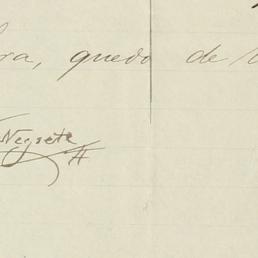 ra, quedo de
Negrete